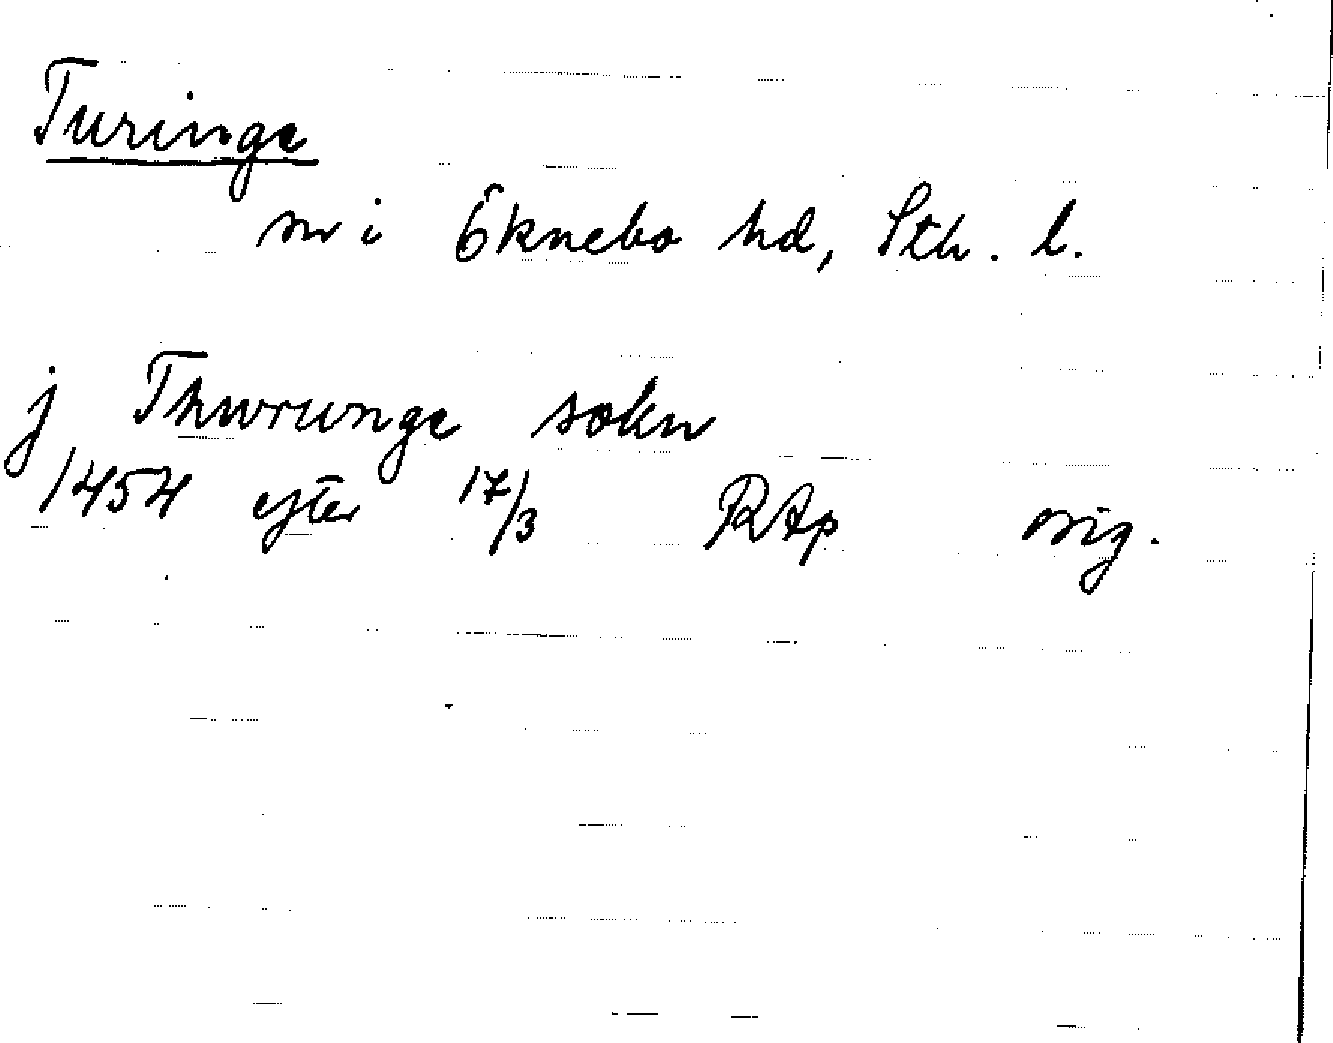 Turinge
sn i Öknebo hd, Sth. l.
j Thwrunge sokn
1454 efter 17/3 RAp orig.